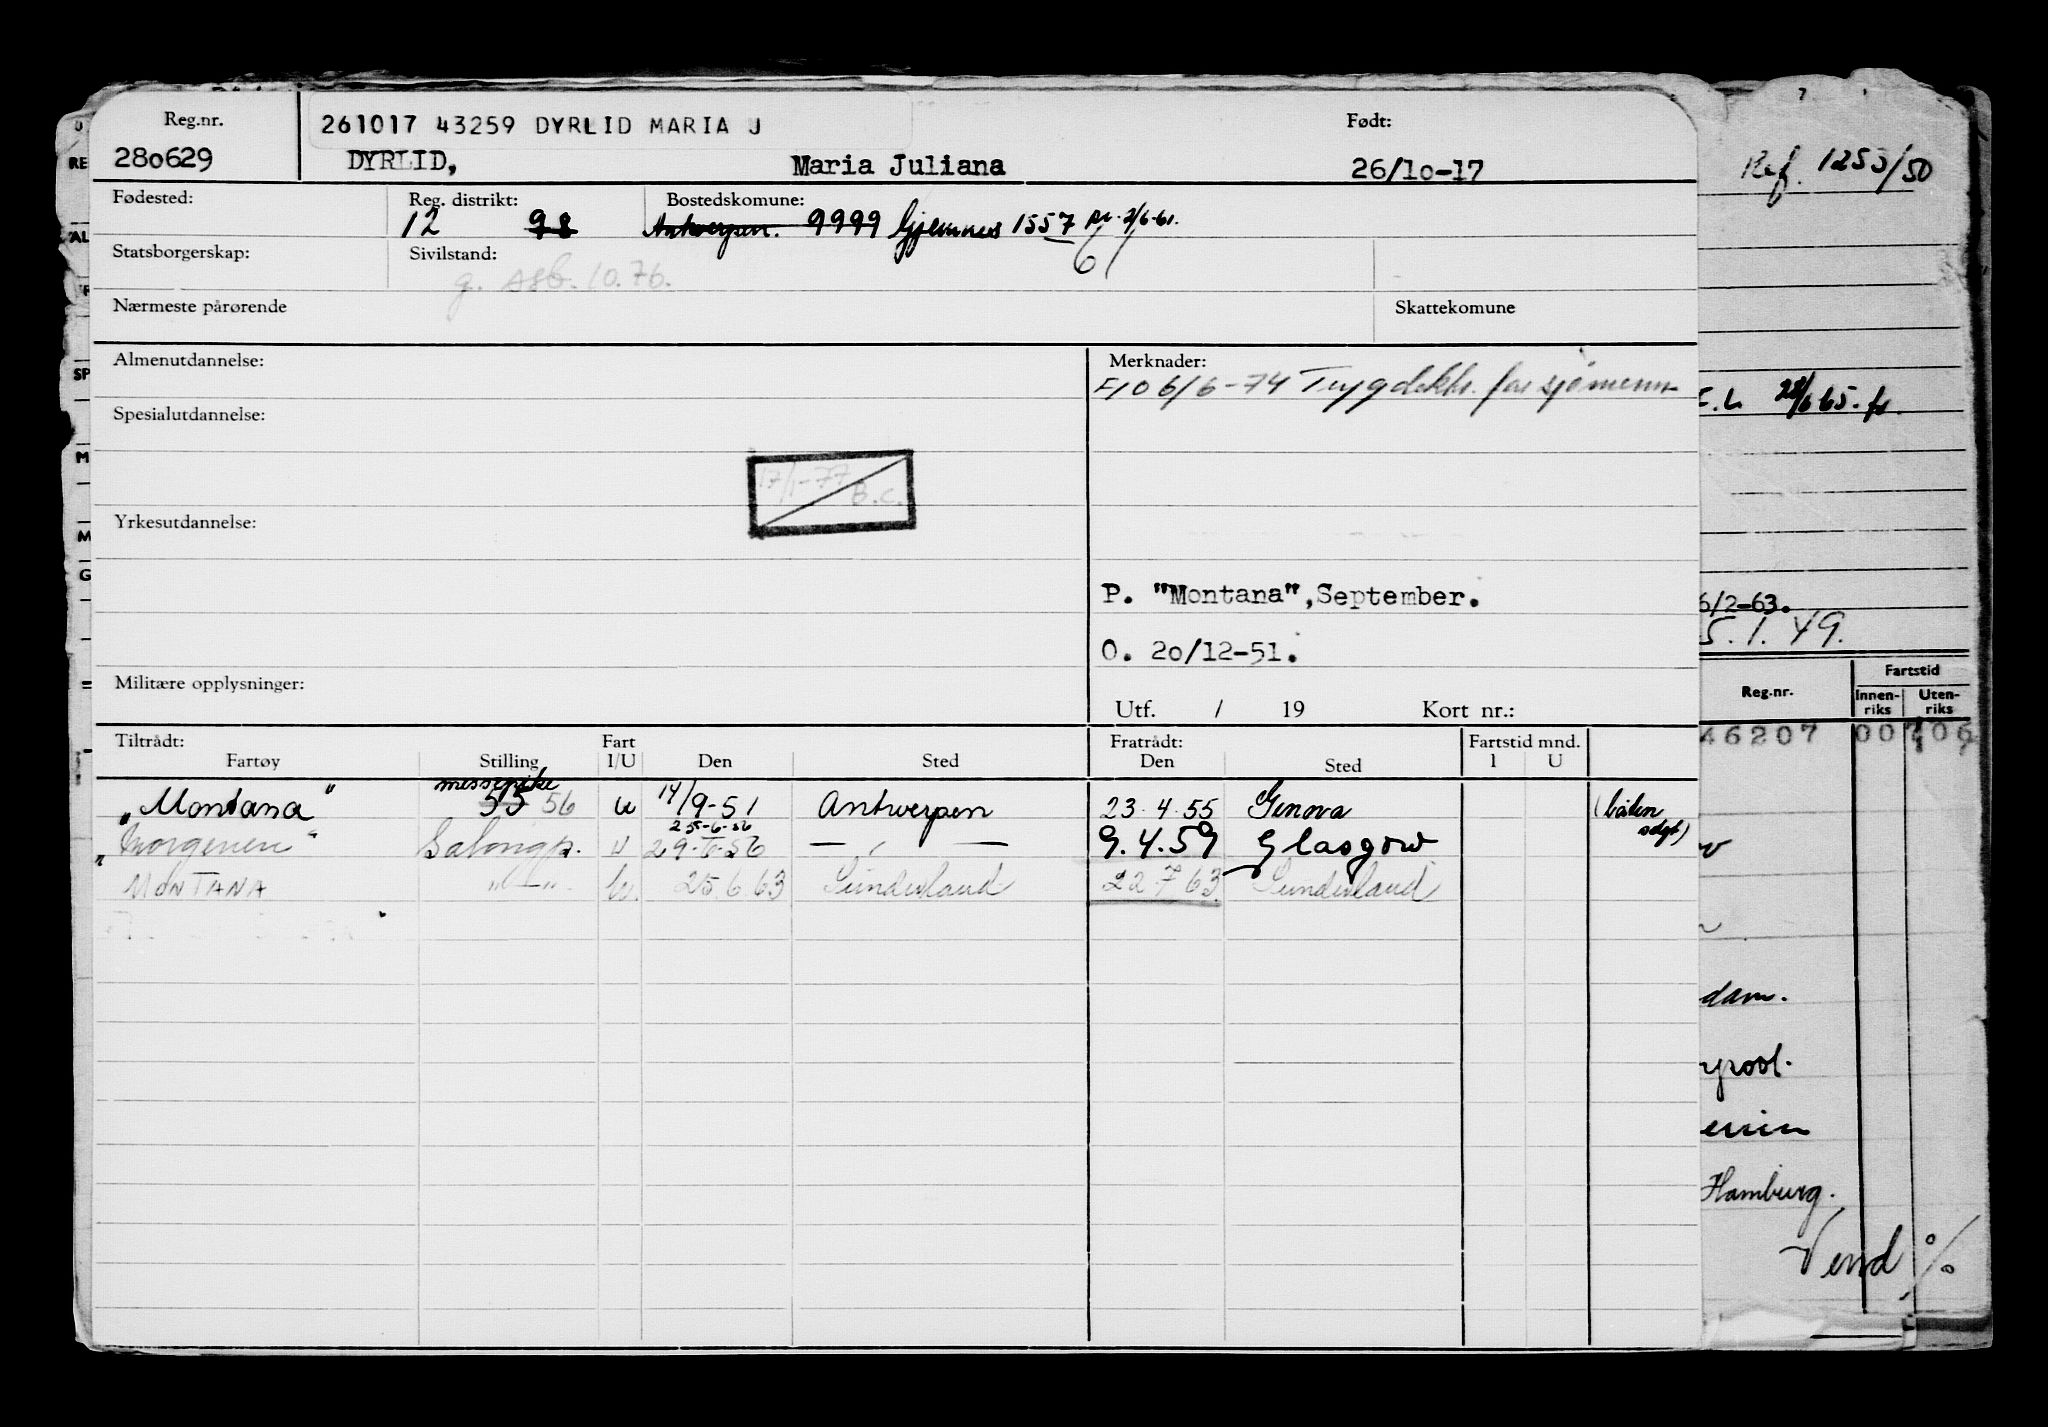 Reg.nr.
280629
261017 43259 DYRLID MARIA J
DYRLID, Maria Juliana
Født:
26/10-17
Fødested:
Reg. distrikt:
12 98
Bostedskomune:
Antwerpen. 9999 Gjemnes 1557 2/6-61.
61
Statsborgerskap:
Sivilstand:
g. 10.76.
Nærmeste pårørende
Skattekomune
Almenutdannelse:
Spesialutdannelse:
17/1-77 B.C.
Yrkesutdannelse:
Militære opplysninger:
Merknader:
6/6-74 Trygdekt. for sjømenn
P. "Montana",September.
O. 20/12-51.
Utf. / 19 Kort nr.:
Tiltrådt: Fart Fratrådt: Fartstid mnd.
Fartøy Stilling I/U Den Sted Den Sted I U
messepike
"Montana" 55 56 u 14/9-51 Antwerpen 23.4.55 Genova (båten solgt)
25-6-56
"Norgenen" Salongp. u 29-6-56 — " — 9.4.59 Glasgow
MONTANA "—" u. 25.6.63 Sunderland 22.7.63 Sunderland
7
Ref. 1253/50
RE
AL
SP
M
M
G
28/6 65. fr.
6/2-63.
5.1.49.
Fartstid
Reg.nr. Innen-riks Uten-riks
46207 00
dam.
Hamburg.
Vend %